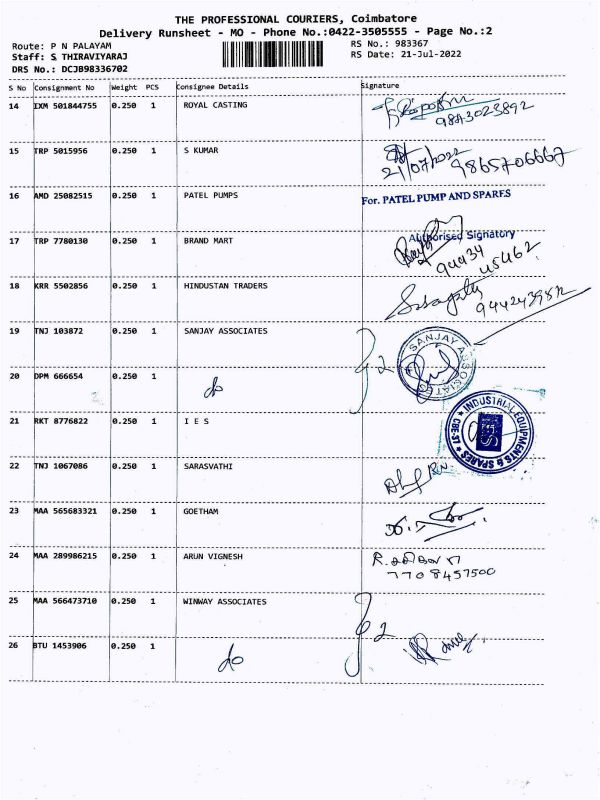 THE PROFESSIONAL COURIERS, Coimbatore
Delivery Runsheet - MO - Phone No.:0422-3505555 - Page No.:2
Route: P N PALAYAM RS No.: 983367
Staff: S THIRAVIYARAJ RS Date: 21-Jul-2022
DRS No.: DCJB98336702
S No Consignment No Weight PCS Consignee Details Signature
14 IXM 501844755 0.250 1 ROYAL CASTING
9843023892
15 TRP 5015956 0.250 1 S KUMAR
21/07/2022 9865706667
16 AMD 25082515 0.250 1 PATEL PUMPS For. PATEL PUMP AND SPARES
17 TRP 7780130 0.250 1 BRAND MART Authorised Signatory
94434 45462
18 KRR 5502856 0.250 1 HINDUSTAN TRADERS
19 TNJ 103872 0.250 1 SANJAY ASSOCIATES 2 SANJAY ASSOCIATES
20 DPM 666654 0.250 1 do
21 RKT 8776822 0.250 1 I E S INDUSTRIAL EQUIPMENTS & SPARES CBE-37 IES
22 TNJ 1067086 0.250 1 SARASVATHI
23 MAA 565683321 0.250 1 GOETHAM
24 MAA 289986215 0.250 1 ARUN VIGNESH
7708457500
25 MAA 566473710 0.250 1 WINWAY ASSOCIATES 2
26 BTU 1453906 0.250 1 do